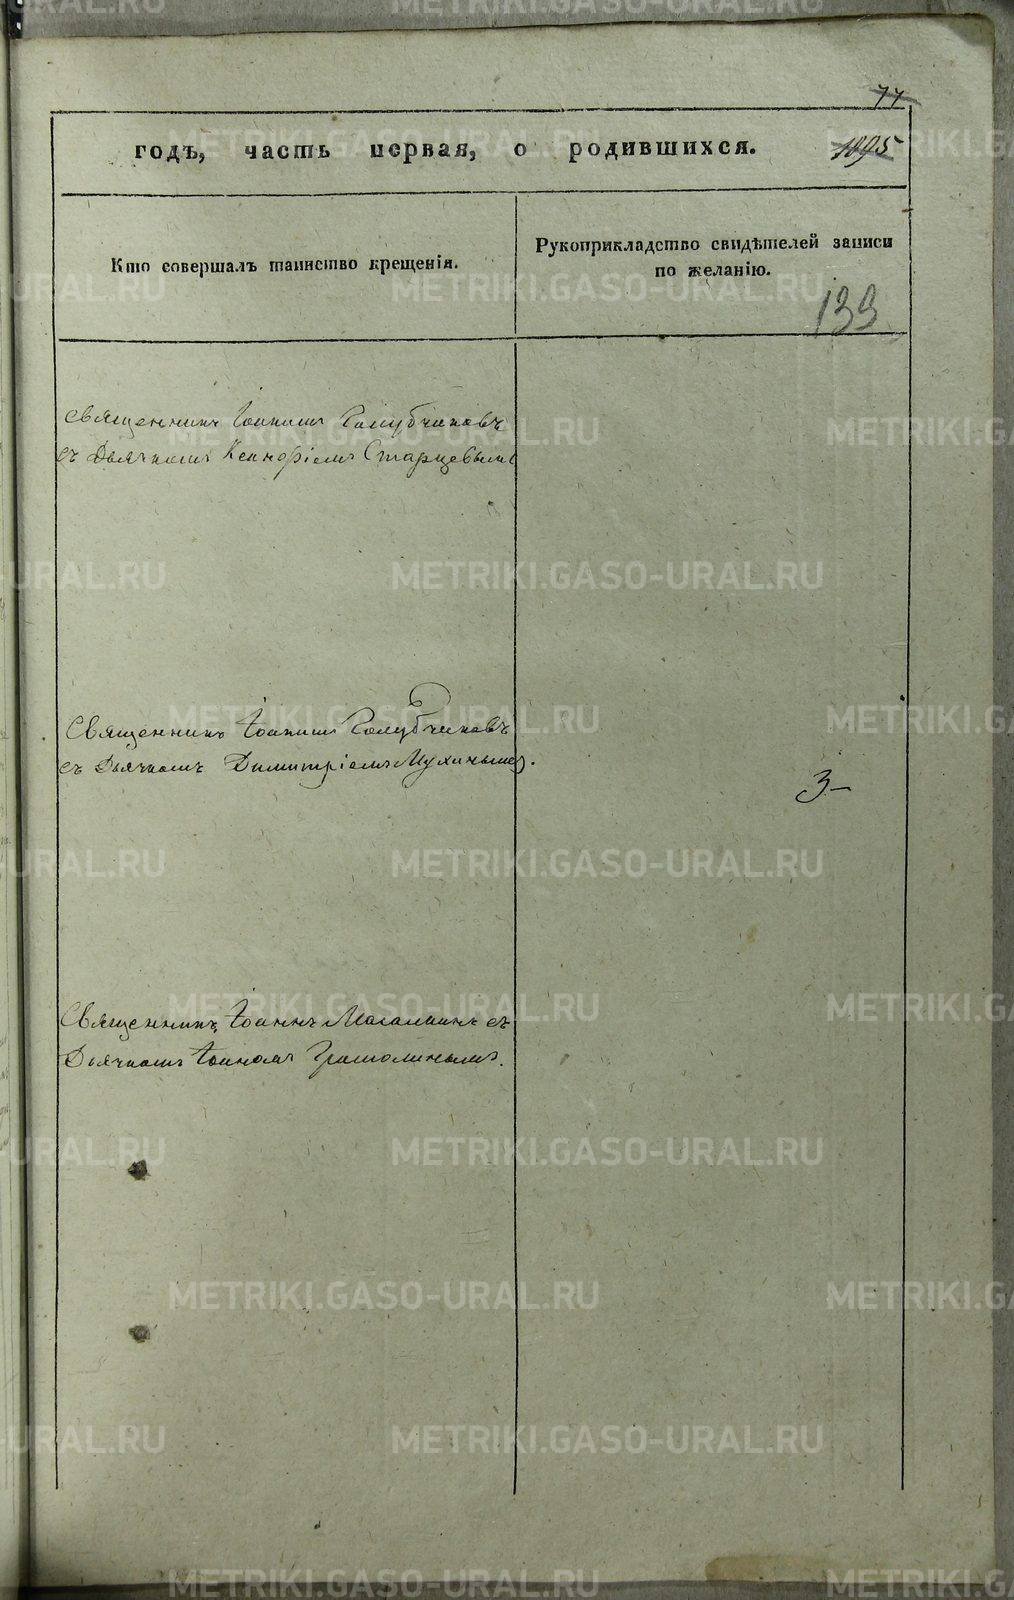 77
годъ, часть первая, о родившихся.
1095
Кто совершалъ таинство крещенія.
Рукоприкладство свидѣтелей записи
по желанію.
133
Священникъ Іоаннъ Голубчиковъ
съ Дьячкомъ Старцевымъ
Священникъ Іоаннъ Голубчиковъ
съ Дьячкомъ Димитріемъ Мухинымъ.
3
Священникъ Іоаннъ съ
Дьячкомъ Іоанномъ
METRIKI.GASO-URAL.RU